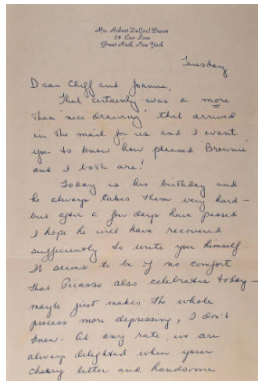 Mrs. Hobart Bacon
24 Cow Lane
Great Neck, New York
Tuesday
Dear Cliff and Joanna,
That certainly was a more
than "nice drawing" that arrived
in the mail for us and I want
you to know how pleased Brownie
and I both are!
Today is his birthday and
he always takes them very hard -
but after a few days have passed
I hope he will have recovered
sufficiently to write you himself.
It seems to be of no comfort
that Picasso also celebrates today -
maybe just makes the whole
process more depressing, I don't
know. At any rate, we are
always delighted when your
cheery letter and handsome